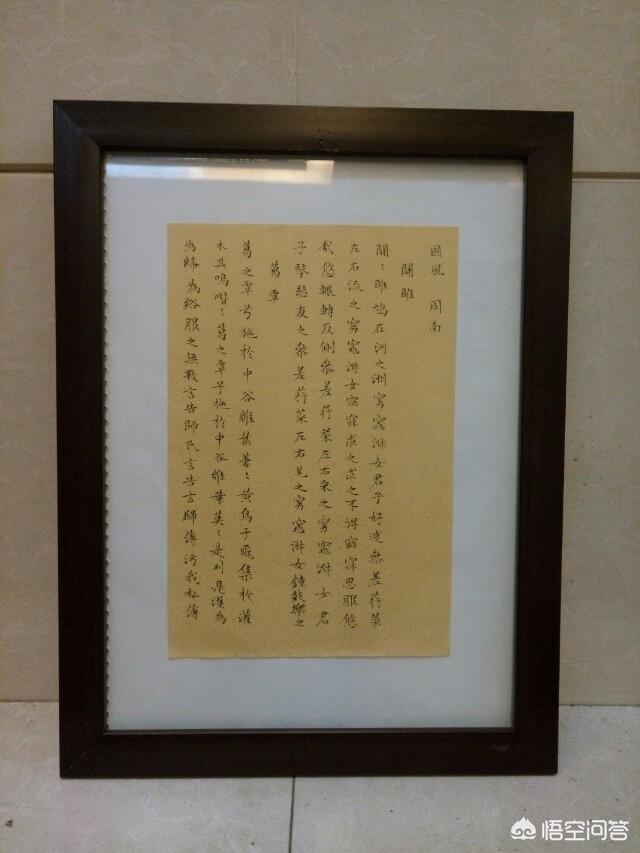 國風 周南
關雎
關〻雎鳩在河之洲窈窕淑女君子好逑參差荇菜
左右流之窈窕淑女寤寐求之求之不得寤寐思服悠
哉悠輾轉反側參差荇菜左右采之窈窕淑女君
子琴瑟友之參差荇菜左右芼之窈窕淑女鐘鼓樂之
葛覃
葛之覃兮施於中谷維葉萋〻黃鳥于飛集於灌
木其鳴喈〻葛之覃兮施於中谷維葉莫〻是刈是濩為
為絺為綌服之無斁言告師氏言告言歸薄污我私薄
悟空问答